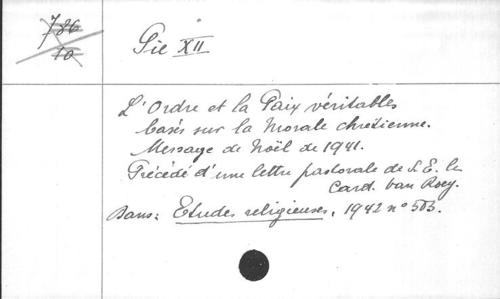 786
10
Pie XII
L'Ordre et la Paix véritables
basés sur la Morale chrétienne.
Message de Noël de 1941.
Précédé d'une lettre pastorale de S.E. le
Card. van Roey.
Dans: Etudes religieuses, 1942 n° 503.